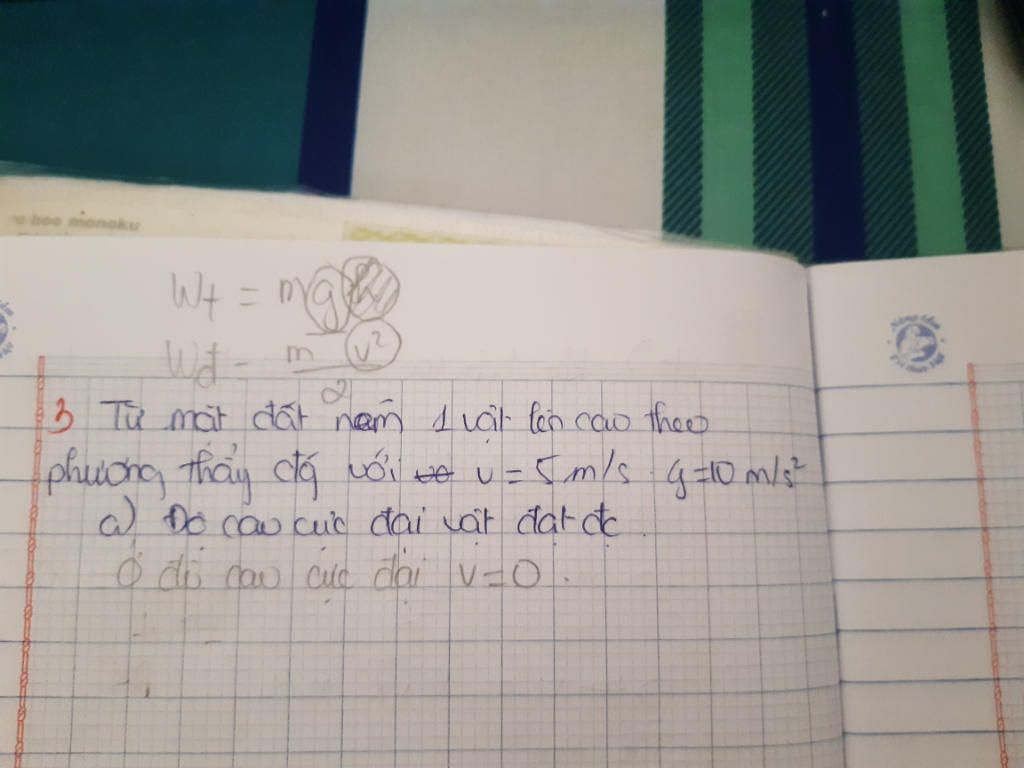 Wt = mgh
Wđ = m v² / 2
3 Từ mặt đất ném 1 vật lên cao theo
phương thẳg đg với v = 5 m/s . g = 10 m/s²
a) Độ cao cực đại vật đạt đc.
Ở độ cao cực đại v = 0 .